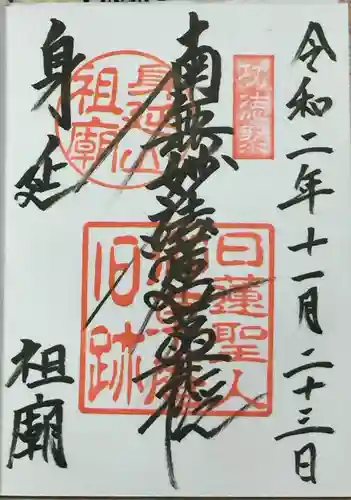 令和二年十一月二十三日
南無妙法蓮華経
身延
祖廟
身延山
祖廟
日蓮聖人
旧跡